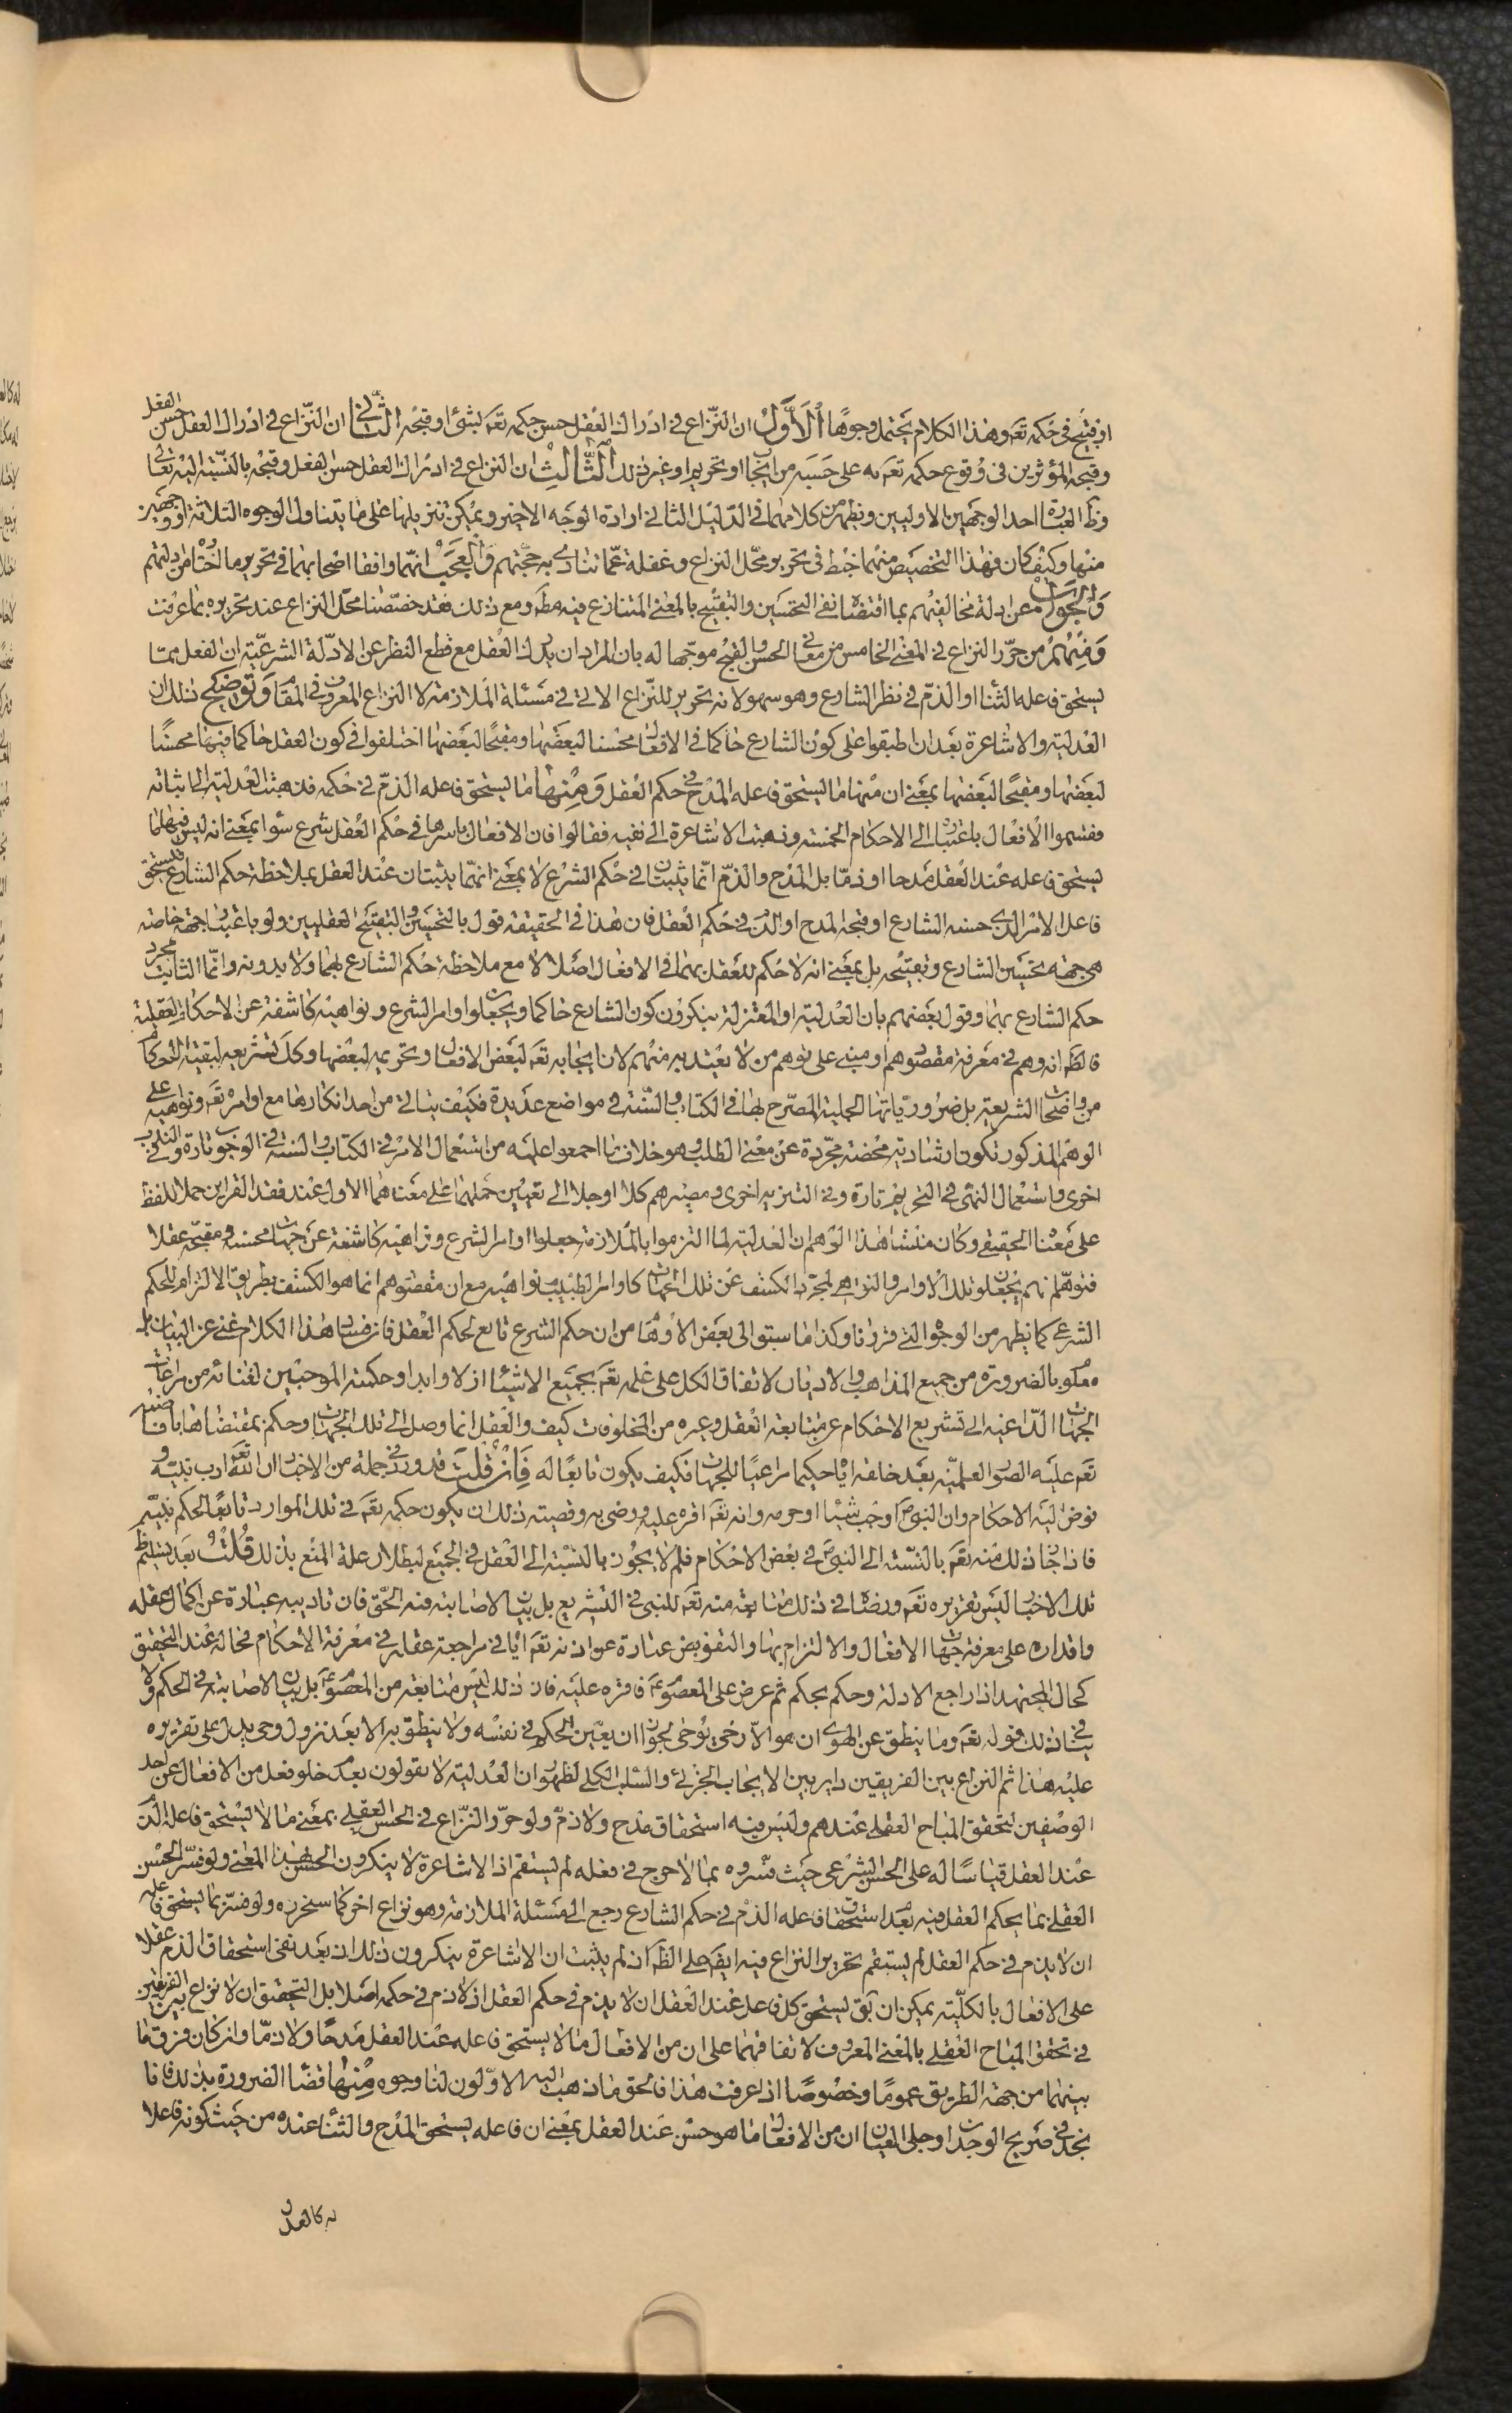 او قبيح في حكمه تعم وهذا الكلام يحتمل وجوها الأول ان النزاع في ادراك العقل حسن حكمه تعم لشئ او قبحه الثاني ان النزاع في ادراك العقل حسن الفعل
وقبحه المؤثرين في وقوع حكمه تعم به على حسبه من ايجاب او تحريم او غير ذلك الثالث ان النزاع في ادراك العقل حسن الفعل وقبحه بالنسبة اليه تعالى
وظ العبارة احد الوجهين الاوليين ويظهر من كلامهما في الدليل الثاني ارادة الوجه الاخير ويمكن تنزيلها على ما يتناول الوجوه الثلاثة او وجهين
منها وكيف كان فهذا التخصيص منهما خبط في تحرير محل النزاع وغفلة عما تنادي به حججهم والعجب انهما وافقا اصحابهما في تحرير ما اختاراه من ادلتهم
والجواب عن ادلة مخالفيهم بما اقتضا نفي التحسين والتقبيح بالمعنى المتنازع فيه مطم ومع ذلك فقد خصصنا محل النزاع عند تحريره بما عرفت
ومنهم من حرر النزاع في المعنى الخامس من معاني الحسن والقبح موجها له بان المراد ان يدرك العقل مع قطع النظر عن الادلة الشرعية ان الفعل مما
يستحق فاعله الثناء او الذم في نظر الشارع وهو سهو لانه تحرير للنزاع الاتي في مسئلة الملازمة لا النزاع المعروف في المقام وتوضيح ذلك ان
العدلية والاشاعرة بعد ان اطبقوا على كون الشارع حاكما في الافعال محسنا لبعضها ومقبحا لبعضها اختلفوا في كون العقل حاكما فيها محسنا
لبعضها ومقبحا لبعضها بمعنى ان منها ما يستحق فاعله المدح في حكم العقل ومنها ما يستحق فاعله الذم في حكمه فذهبت العدلية الى اثباته
فقسموا الافعال باعتباره الى الاحكام الخمسة وذهبت الاشاعرة الى نفيه فقالوا فان الافعال باسرها في حكم العقل شرع سواء بمعنى انه ليس فيها ما
يستحق فاعله عند العقل مدحا او ذما بل المدح والذم انما يثبتان في حكم الشرع لا بمعنى انهما يثبتان عند العقل بملاحظة حكم الشارع فيستحق
فاعل الامر الذي حسنه الشارع او قبحه المدح او الذم في حكم العقل فان هذا في الحقيقة قول بالتحسين والتقبيح العقليين ولو باعتبار جهة خاصة
هي جهة تحسين الشارع وتقبيحه بل بمعنى انه لا حكم للعقل بهما في الافعال اصلا لا مع ملاحظة حكم الشارع بهما ولا بدونه وانما الثابت مجرد
حكم الشارع بهما وقول بعضهم بان العدلية او المعتزلة ينكرون كون الشارع حاكما ويجعلوا اوامر الشرع ونواهيه كاشفة عن الاحكام العقلية
فالظم انه وهم في معرفة مقصودهم او مبني على توهم من لا يعتد به منهم لان ايجابه تعم لبعض الافعال وتحريمه لبعضها وكك تشريعه لبقية الاحكام
من واضحات الشريعة بل ضرورياتها الجلية المصرح بها في الكتاب والسنة في مواضع عديدة فكيف يتاتي من احد انكارها مع اوامره تعم ونواهيه على
الوهم المذكور تكون ارشادية محضة مجردة عن معنى الطلب وهو خلاف ما اجمعوا عليه من استعمال الامر في الكتاب والسنة في الوجوب تارة وفي الندب
اخرى واستعمال النهي في التحريم تارة وفي التنزيه اخرى ومصيرهم كلا او جلا الى تعيين حملهما على معناهما الاول عند فقد القراين حملا للفظ
على معناه الحقيقي وكان منشا هذا الوهم ان العدلية لما التزموا بالملازمة جعلوا اوامر الشرع ونواهيه كاشفة عن جهات محسنة ومقبحة عقلا
فتوهم انهم يجعلون تلك الاوامر والنواهي لمجرد الكشف عن تلك الجهات كاوامر الطبيب ونواهيه مع ان مقصودهم انما هو الكشف بطريق الالتزام للحكم
الشرعي كما يظهر من الوجوه التي قررنا وكذا ما سبق الى بعض الاوهام من ان حكم الشرع تابع لحكم العقل فان فساد هذا الكلام غني عن البيان بل
معلوم بالضرورة من جميع المذاهب والاديان لاتفاق الكل على علمه تعم بجميع الاشياء ازلا وابدا وحكمته الموجبين لغنائه من مراعات
الجهات الداعية الى تشريع الاحكام عن متابعة العقل وغيره من المخلوقات كيف والعقل انما وصل الى تلك الجهات وحكم بمقتضاها بافاضته
تعم عليه الصور العلمية بعد خلقه اياه حكيما مراعيا للجهات فكيف يكون تابعا له فان قلت قد ورد في جملة من الاخبار ان الله تعم ادب نبيه و
فوض اليه الاحكام وان النبي ص اوجب شيئا او حرمه وانه تعم اقره عليه ورضي به وقضيته ذلك ان يكون حكمه تعم في تلك الموارد تابعا لحكم نبيه
فاذا جاز ذلك منه تعم بالنسبة الى النبي ص في بعض الاحكام فلم لا يجوز بالنسبة الى العقل في الجميع لبطلان علة المنع بذلك قلت بعد تسليم
تلك الاخبار ليس تقريره تعم ورضاه في ذلك متابعة منه تعم للنبي في التشريع بل بيان لاصابته فيه الحق فان تاديبه عبارة عن اكمال عقله
واقداره على معرفة جهات الافعال والالتزام بها والتفويض عبارة عن اذنه تعم اياه في مراجعة عقله في معرفة الاحكام فحاله عند التحقيق
كحال المجتهد اذا راجع الادلة وحكم بحكم ثم عرض على المعصوم ع فاقره عليه فان ذلك ليس متابعة من المعصوم ع بل بيان لاصابته في الحكم ولا
ينافي ذلك قوله تعم وما ينطق عن الهوى ان هو الا وحي يوحى لجواز ان يعين الحكم في نفسه ولا ينطق به الا بعد نزول وحي يدل على تقريره
عليه هذا ثم النزاع بين الفريقين داير بين الايجاب الجزئي والسلب الكلي لظهور ان العدلية لا يقولون بعدم خلو فعل من الافعال عن احد
الوصفين لتحقق المباح العقلي عندهم وليس فيه استحقاق مدح ولا ذم ولو حرر النزاع في الحسن العقلي بمعنى ما لا يستحق فاعله الذم
عند العقل قياسا له على الحسن الشرعي حيث فسروه بما لا حرج في فعله لم يستقم اذ الاشاعرة لا ينكرون الحسن بهذا المعنى ولو فسر الحسن
العقلي بما يحكم العقل فيه بعدم استحقاق فاعله الذم في حكم الشارع رجع الى مسئلة الملازمة وهو نزاع اخر كما سنحرره ولو فسر بما يستحق فاعله
ان لا يذم في حكم العقل لم يستقم تحرير النزاع فيه ايضم على الظم اذ لم يثبت ان الاشاعرة ينكرون ذلك ان بعد نفي استحقاق الذم عقلا
على الافعال بالكلية يمكن ان يق يستحق كل فاعل عند العقل ان لا يذم في حكم العقل اذ لا ذم في حكمه اصلا بل التحقيق ان لا نزاع بين الفريقين
في تحقق المباح العقلي بالمعنى المعروف لاتفاقهما على ان من الافعال ما لا يستحق فاعله عند العقل مدحا ولا ذما وان كان فرق ما
بينهما من جهة الطريق عموما وخصوصا اذا عرفت هذا فالحق ما ذهب اليه الاولون لنا وجوه منها قضاء الضرورة بذلك فانا
نجد في صريح الوجدان وجلي العيان ان من الافعال ما هو حسن عند العقل بمعنى ان فاعله يستحق المدح والثناء عنده من حيث كونه فاعلا
له كالعدل